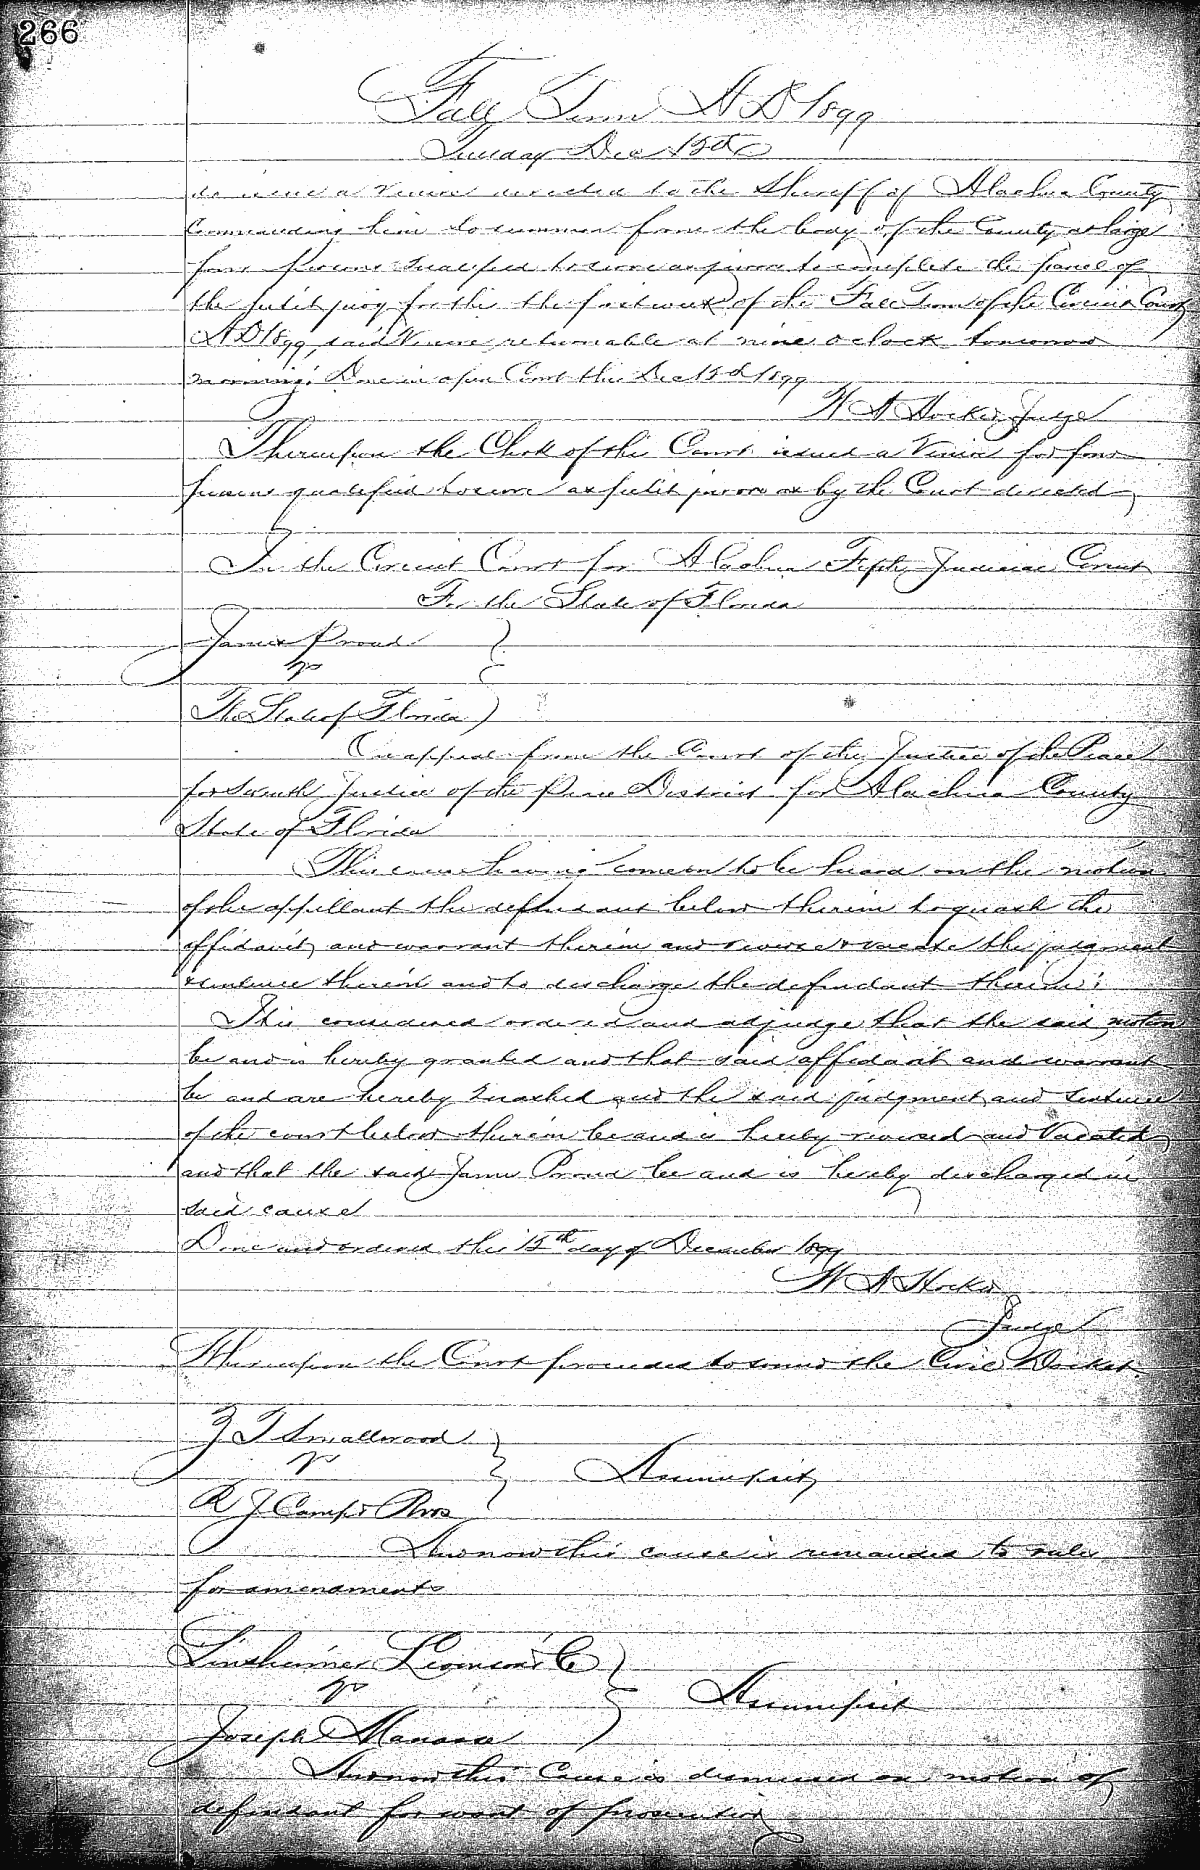 266
Fall Term A D 1899
Tuesday Dec 12th
to issue a Venire directed to the Sheriff of Alachua County
Commanding him to summon from the body of the County at large
four persons qualified to serve as jurors to complete the panel of
the petit jury for the the first week of the Fall Term of the Circuit Court
A D 1899, said Venire returnable at nine oclock tomorrow
morning. Done in open Court this Dec 12th 1899
W A Hocker Judge
Thereupon the Clerk of the Court issued a Venire for four
persons qualified to serve as petit jurors as by the Court directed
In the Circuit Court for Alachua Fifth Judicial Circuit
For the State of Florida
James Proud
vs
The State of Florida
On appeal from the Court of the Justice of the Peace
for Justice of the Peace District for Alachua County
State of Florida
This cause having come on to be heard on the motion
of the appellant the defendant below therein to quash the
affidavit and warrant therein and reverse & vacate the judgment
& sentence therein and to discharge the defendant therein;
It is considered ordered and adjudge that the said motion
be and is hereby granted and that said affidavit and warrant
be and are hereby Quashed and the said judgment and Sentence
of the court below therein be and is hereby reversed and Vacated
and that the said James Proud be and is hereby discharged in
said cause
Done and ordered this 12th day of December 1899
W A Hocker
Judge
Thereupon the Court proceeded to sound the Civil Docket.
T Smallwood
vs
Assumpsit
R J Camp & Bros
And now this cause is remanded to rules
for amendments
& Co
vs
Assumpsit
Joseph Manasse
And now this Cause is dismissed on motion of
defendant for want of prosecution